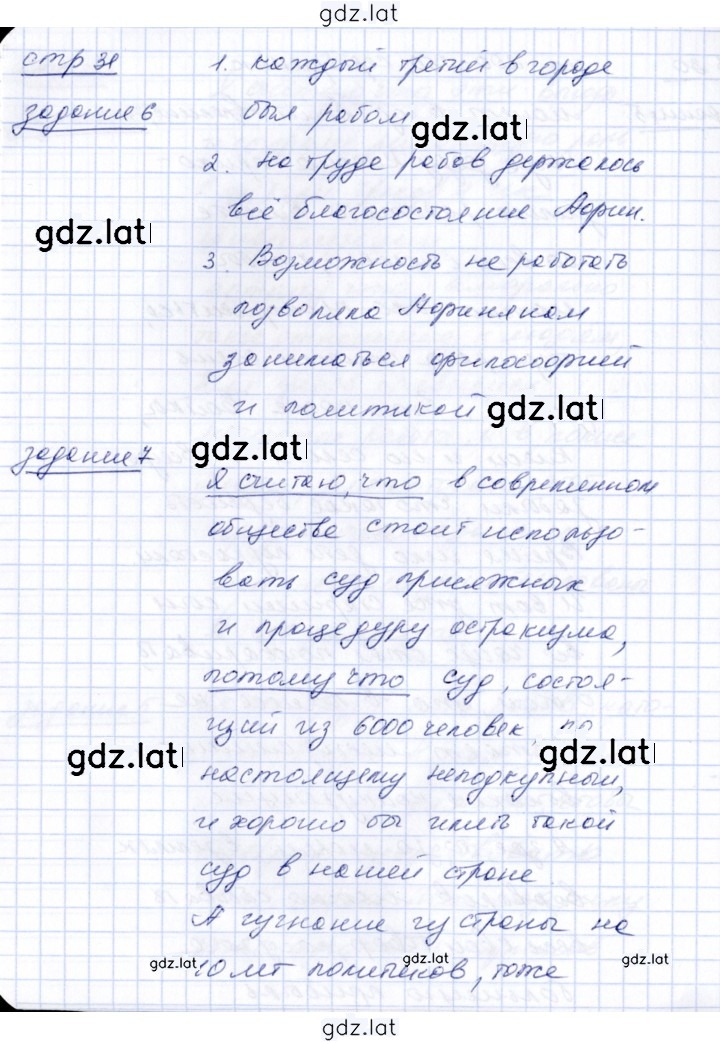 gdz.lat
стр 31 1. каждый третий в городе
задание 6 был рабом gdz.lat
2. на труде рабов держалось
всё благосостояние Афин.
gdz.lat
3. Возможность не работать
позволяла Афинянам
заниматься философией
и политикой gdz.lat
задание 7 gdz.lat
Я считаю, что в современном
обществе стоит использо-
вать суд присяжных
и процедуру остракизма,
потому что суд, состоя-
щий из 6000 человек, по
gdz.lat gdz.lat
настоящему неподкупный,
и хорошо бы иметь такой
суд в нашей стране
А изгнание из страны на
gdz.lat gdz.lat gdz.lat
10 лет политиков, тоже
gdz.lat